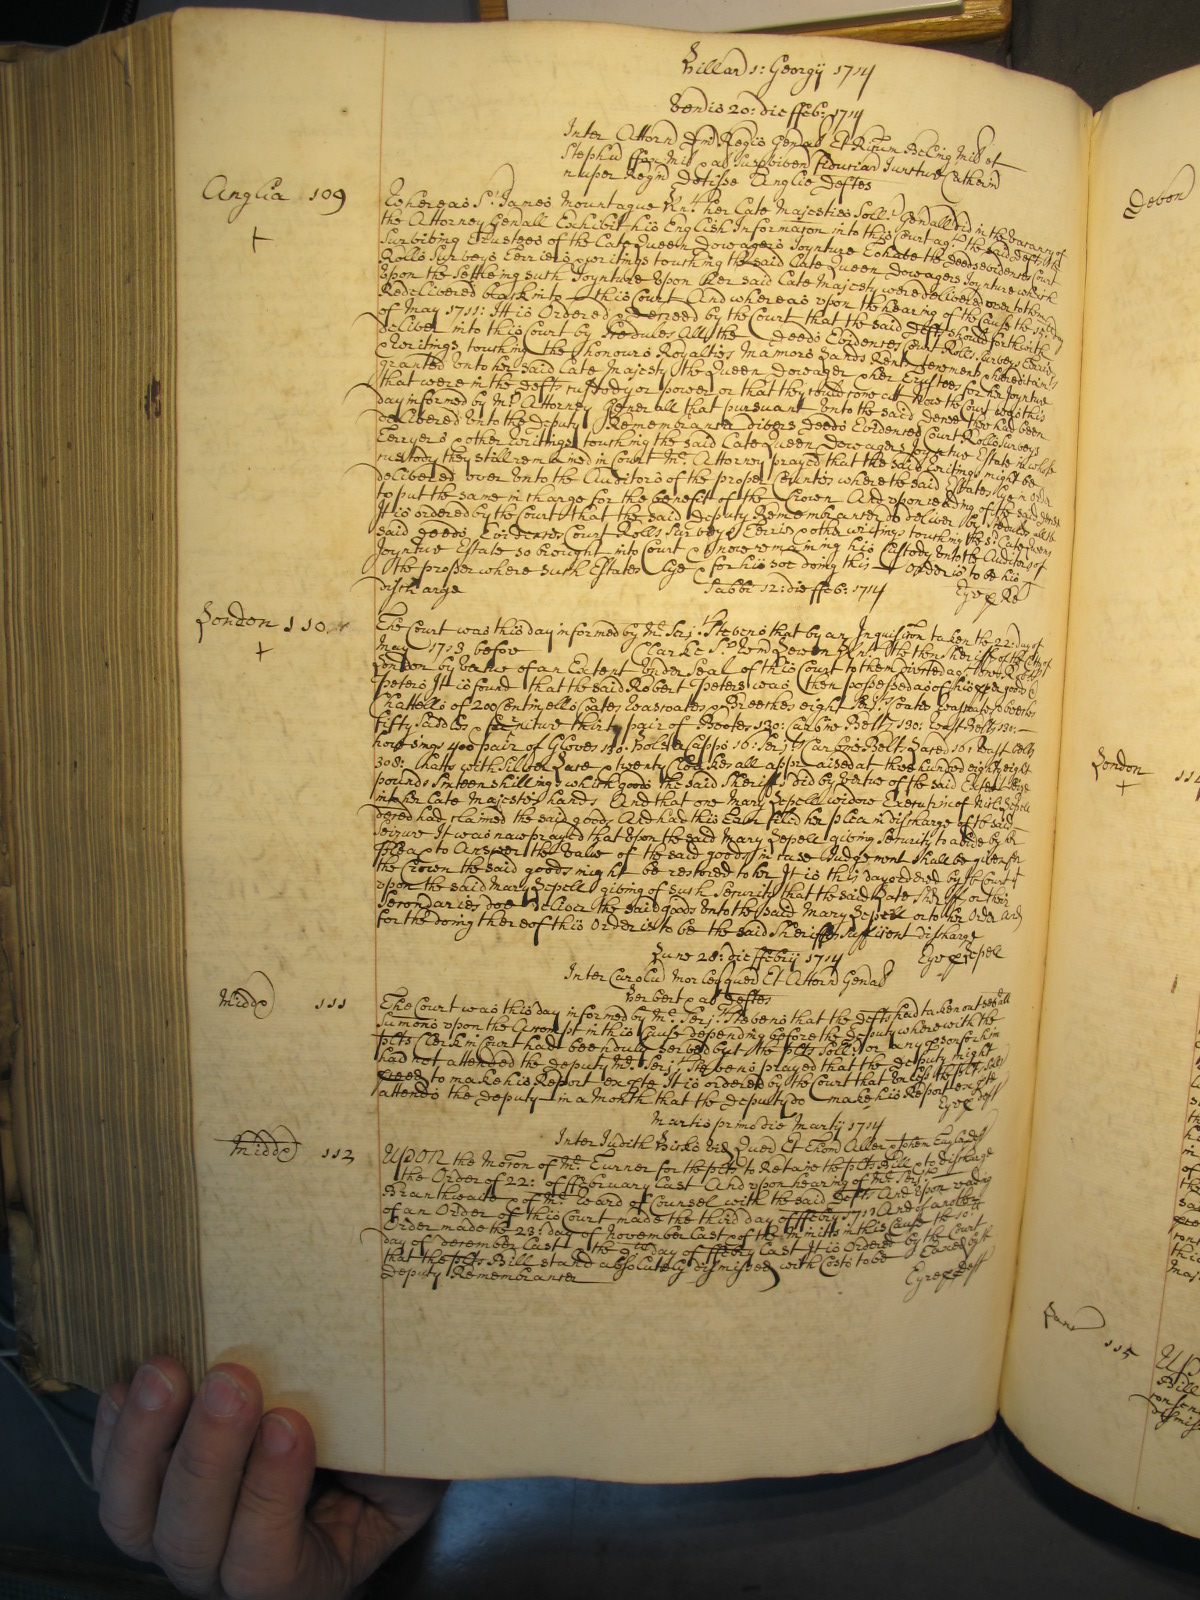 Hillar 1: Georgij 1714
Veneris 20: die ffeb: 1714
Inter Attorn Dni Regis Genal Et
Stephu ffox Mil al Surviven fiduciar Juncture Catherin
nuper Regin Dotisse Anglie Deftes
Anglia 109
Whereas Sr. James Mountague Knt. her Late Majesties Soll: Generall did in the vacancy of
the Attorney Generall Exhibit his English Informacon into this Court agt. the said Defts the
Surviving Trustees of the Late Queen Dowagers Joynture To have the deeds evidences Court
Rolls Surveys Terriers & writings touching the said Late Queen Dowagers Joynture which
Upon the Setling such Joynture Upon her said Late Majesty were delivered over to them
Redelivered back into this Court And whereas upon the hearing of the Cause the
of May 1711: It is Ordered & Decreed by the Court that the said Defts should forthwith
deliver into this Court by Schedules All the Deeds Evidences Court Rolls Surveys
& Writings touching the honours Royalties Manors Lands Rents tenements & hereditamts
granted Unto her said Late Majesty the Queen Dowager & her Trustees for her Joynture
that were in the Defts custody or power or that they could come att Now the Court was this
day informed by Mr. Attorney Generall that pursuant Unto the said decree there had been
delivered Unto the Deputy Remembrancer divers Deeds Evidences Court Rolls Surveys
Terryers & other Writings touching the said Late Queen Dowagers Joynture Estate in whose
custody they still remained in Court Mr. Attorney prayed that the said Writings might be
delivered over Unto the Auditors of the proper Counties where the said Estates lye in order
to put the same in charge for the benefit of the Crown And upon reading of the said decree
It is ordered by the Court that the said Deputy Remembrancer do deliver by Schedule all the
said deeds Evidences Court Rolls Surveys Terries & other writings touching the sd Late Queens
Joynture Estate so brought into Court & now remaining his Custody Unto the Auditors of
the proper where such Estates lye & for his soe doing this Order is to be his
discharge
Eyre p Re
Sabbi 12: die ffeb: 1714
London 110
The Court was this day informed by Mr. Serj: Stevens that by an Inquisicon taken the 22: day of
May 1713 before Clarke Sr. then Sheriffs of the City of
London by Vertue of an Extent Under Seal of this Court to them directed agt. Robert
Peters It is found that the said Robert Peters was then possessed as of his proper goods &
Chattells of 200 Centinells Coates Wascoates & Breeches eight Serjts Coates
fifty Saddles & furniture thirty pair of Bootes 130: Carbine Belts 130: Wast Belts 130:
howsings 400 pair of Gloves 130. Holster Capps 16: Serjts Carbine Belts Laced 16: Wast belts
308: hatts with Silver Lace & twenty all appraised at three hundred eighty eight
pounds sixteen shillings which goods the said Sheriffs did by Vertue of the said Extent Seize
into her Late Majestys hands And that one Mary Lepell widow Executrix of Nich Lepell
deced had claimed the said goods And had this Term filed her plea in discharge of the said
Seizure It was now prayed that Upon the said Mary Lepell giving Security to abide by her
Plea & to Answer the Value of the said goods in case Judgement shall be given for
the Crown the said goods might be restored to her It is this day ordered by the Court yt
upon the said Mary Lepell giving of such Security that the said Late Sheriff or their
Secondaries doe deliver the said goods Unto the said Mary Lepell or to her Order And
for the doing thereof this Order is to be the said Sheriffs sufficient discharge
Eyre p Lepell
Lune 28: die ffebrij 1714
Inter Carolu Quer Et Attorn Genal
Herbert & al Deftes
Midds 111
The Court was this day informed by Mr. Serj: Stevens that the Defts had taken out severall
Sumons upon the Accompt in this Cause depending before the Deputy wherewith the
plts Clerk in Court had been duly Served but the plts Sollr or any person for him
had not attended the Deputy Mr. Serjt. Stevens prayed that the Deputy might
to make his Report exparte It is ordered by the Court that Unless the plts Sollr
attends the Deputy in a Month that the Deputy do make his Report exparte
Eyre p Deft
Martis primo die Martij 1714
Inter Judith Vid Quer Et Thom Allen
Midds 112
UPON the Motion of Mr. Turner for the plts to Retaine the plts Bill & to discharge
the Order of 22: of ffebruary Last And upon hearing of Mr. Serjt
Branthwaite & of Mr. Ward of Counsel with the said Defts And Upon reading
of an Order of this Court made the third day of ffebry 1713 And of another
Order made the 23: day of November Last & of the Minitts in this Cause the 10:
day of December Last & the day of ffebry Last It is Ordered by the Court
that the plts Bill stand absolutely dismissed with Costs to be Taxed by the
Deputy Remembrancer
Eyre p Deft
Devon
London
115